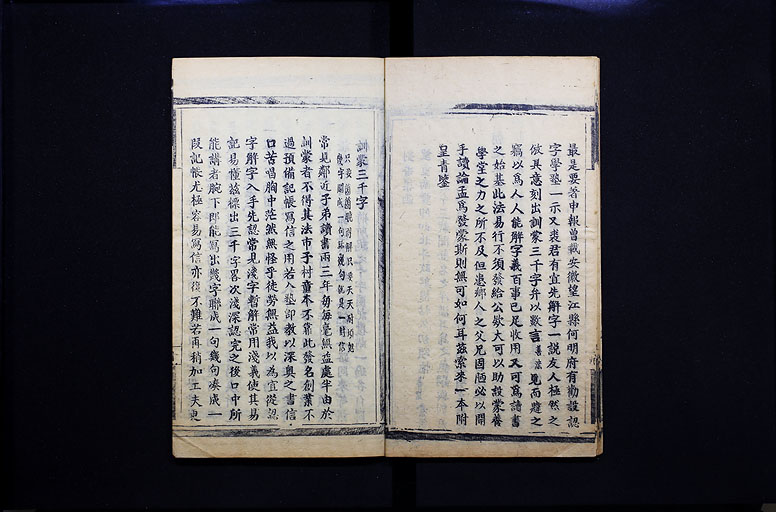 最是要著申報曾載安徽望江縣何明府有勸設認
字學塾一示又裘君有宜先解字一說友人極然之
倣其意刻出訓蒙三千字弁以數言善法見而韙之
竊以爲人人能解字義百事已足收用又可爲讀書
之始基此法易行不須發給公欵大可以助設蒙養
學堂之力之所不及但患鄉人之父兄固陋必以開
手讀論孟爲發蒙斯則無可如何耳茲索來一本附
呈青鑒
訓蒙三千字
只要識得能講解只要天天用功起
幾字聯成一句耳幾句就是一封信
常見鄰近子弟讀書兩三年毎毎毫無益處半由於
訓蒙者不得其法市予村童本不靠此發名創業不
過預備記帳寫信之用若入塾即教以深奧之書信
口苦唱胸中茫然無怪乎徒勞無益我以爲宜從認
字解字入手先認常見淺字暫解常用淺義使其易
記易懂茲標出三千字畧次淺深認完之後口中所
能講者腕下即能寫出幾字聯成一句幾句湊成一
段記帳尤極容易寫信亦復不難若再稍加工夫更